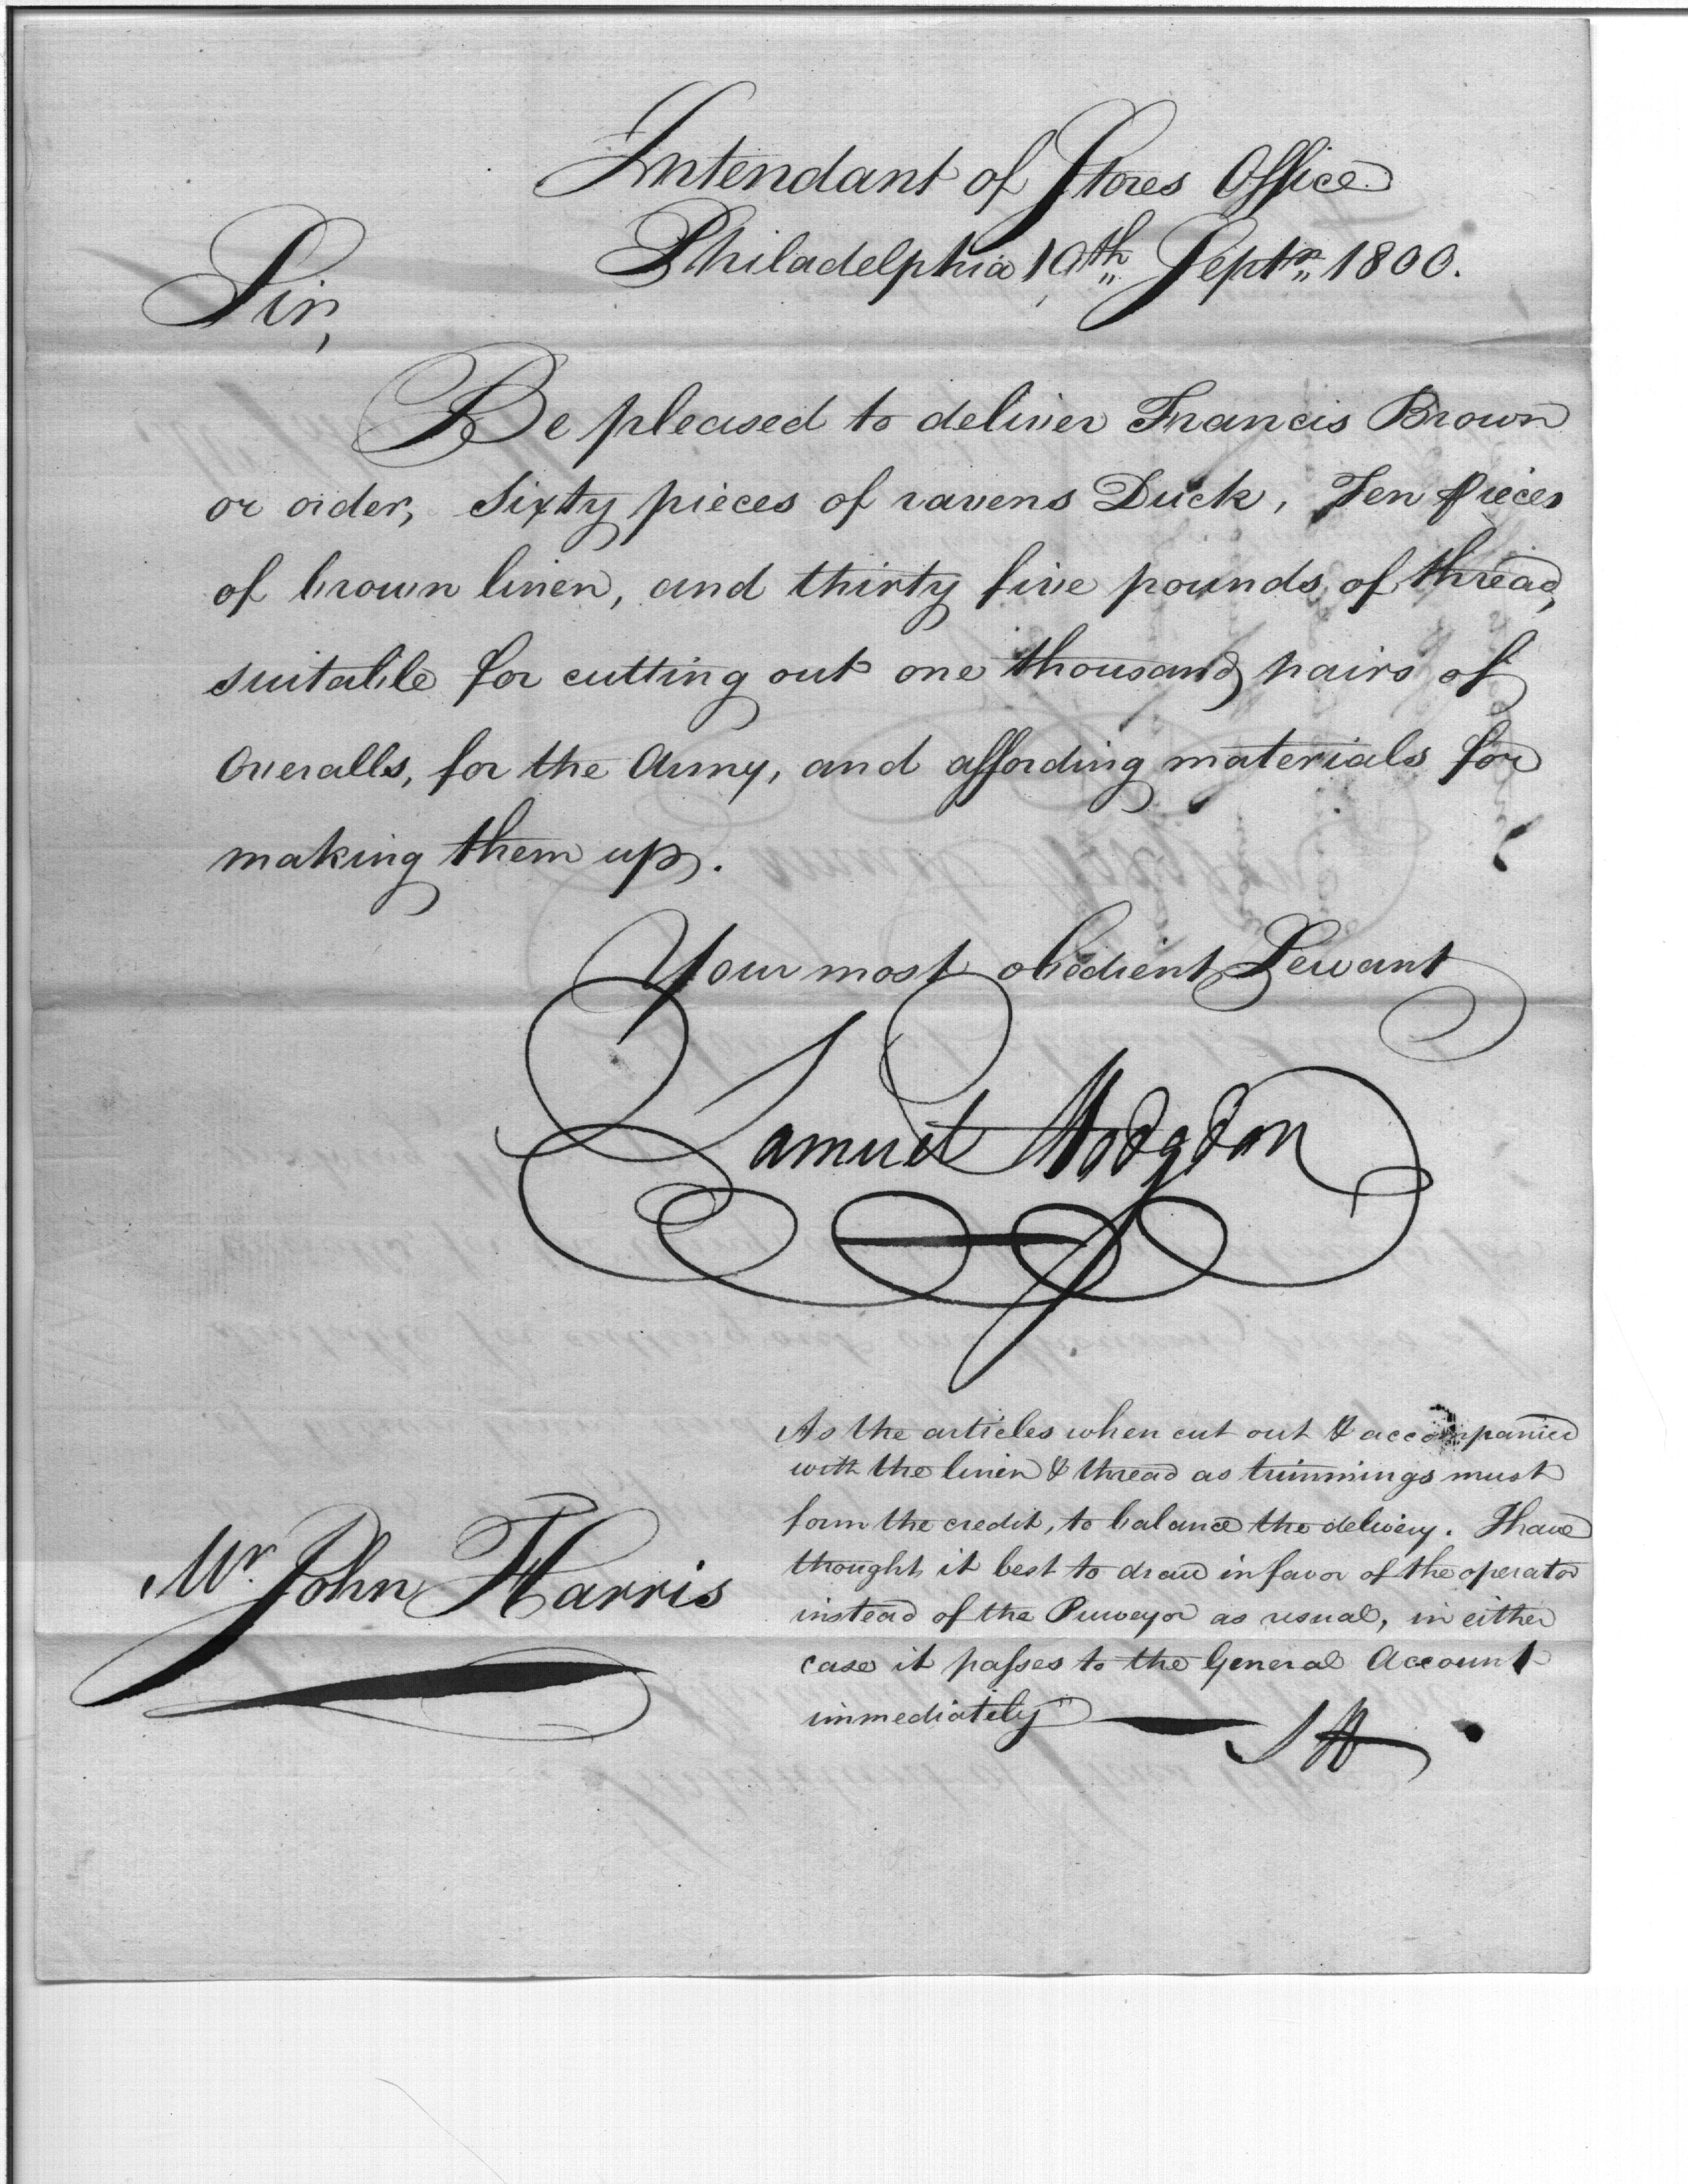 Intendant of Stores Office
Philadelphia 19th Septr 1800.
Sir,
Be pleased to deliver Francis Brown
or order, Sixty pieces of ravens Duck, Ten pieces
of brown linen, and thirty five pounds of thread,
suitable for cutting out one thousand pairs of
Overalls, for the Army, and affording materials for
making them up.
Your most obedient Servant
Samuel Hodgdon
As the articles when cut out & accompanied
with the linen & thread as trimmings must
form the credit, to balance the delivery. I have
thought it best to draw in favor of the operator
instead of the Purveyor as usual, in either
case it passes to the General Account
immediately
SH
Mr. John Harris